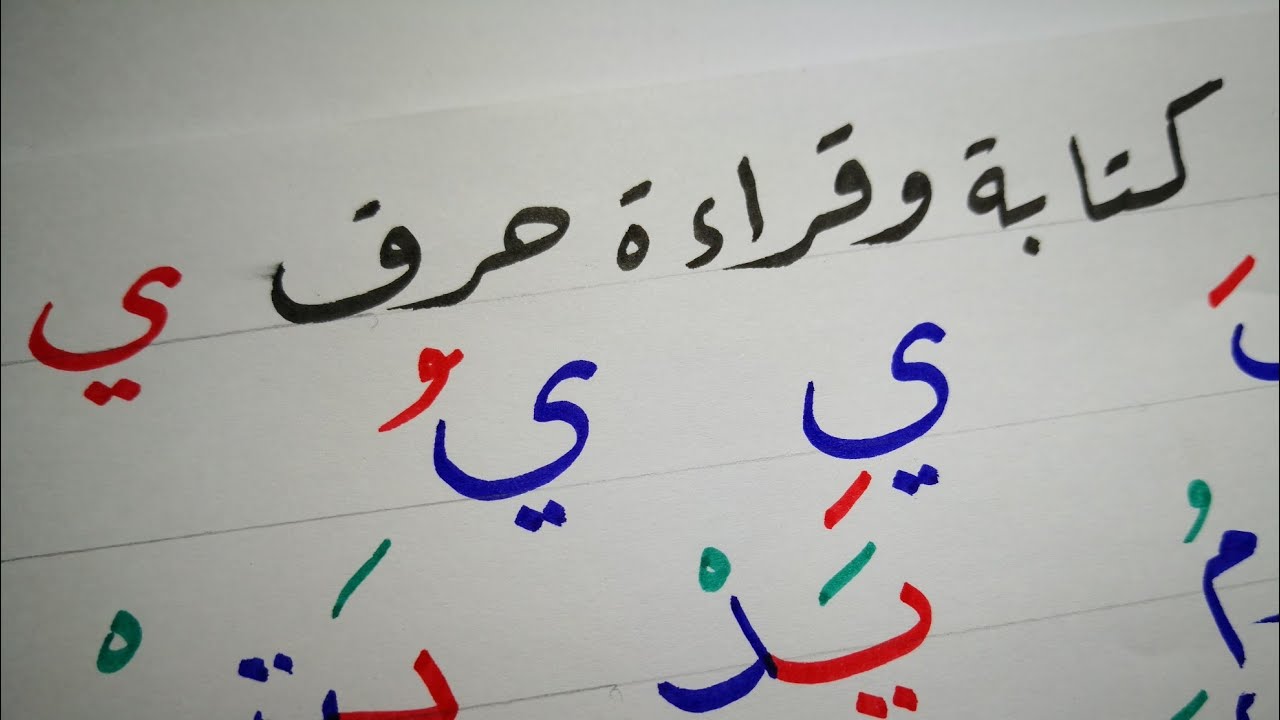 كتابة وقراءة حرف ي
يِ يُ
يَدْ